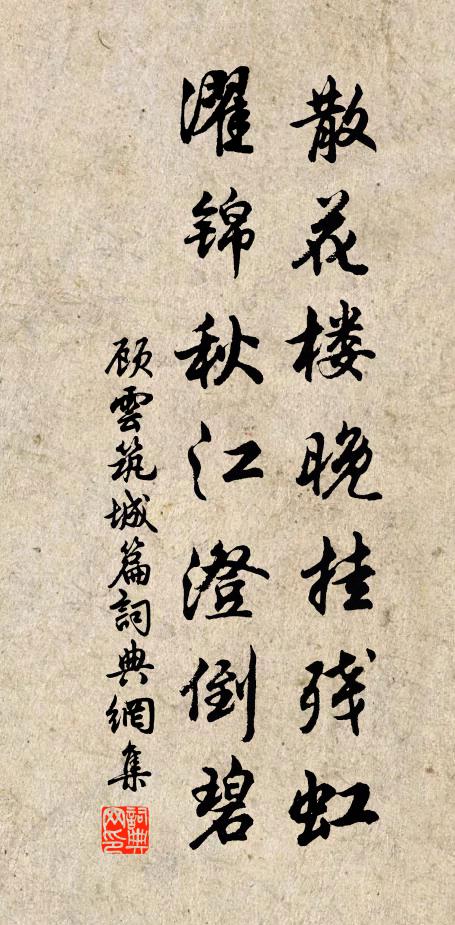 散花楼晚挂残虹
濯锦秋江澄倒碧
顾雲筑城篇詞典網集
詞典网印